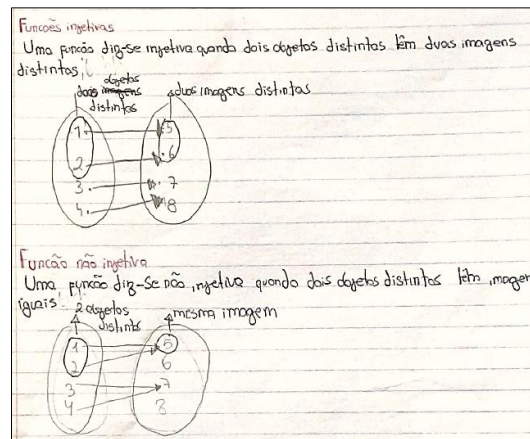 Funções injetivas
Uma função diz-se injetiva quando dois objetos distintos têm duas imagens
distintas
objetos
dois imagens duas imagens distintas
distintos
1 5
2 6
3 7
4 8
Função não injetiva
Uma função diz-se não injetiva quando dois objetos distintos têm imagen
iguais
2 objetos mesma imagem
distints
1 5
2 6
3 7
4 8